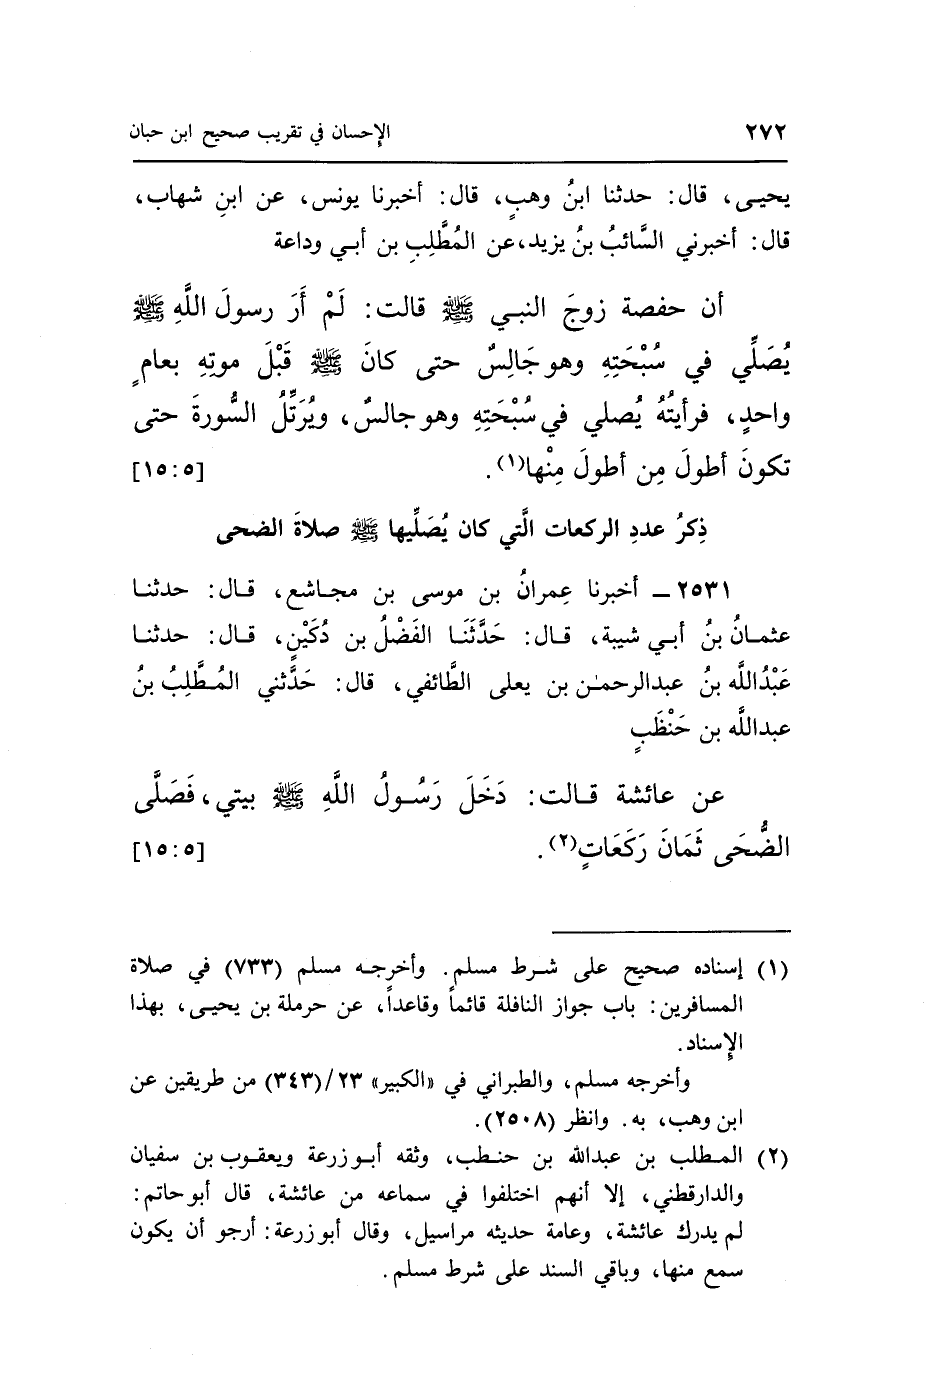 ٢٧٢ الإحسان في تقريب صحيح ابن حبان
يحيى، قال: حدثنا ابنُ وهبٍ، قال: أخبرنا يونس، عن ابنِ شهاب،
قال: أخبرني السَّائبُ بنُ يزيد، عن المُطَّلِبِ بن أبي وداعة
أن حفصة زوجَ النبي ﷺ قالت: لَمْ أَرَ رسولَ اللَّهِ ﷺ
يُصَلِّي في سُبْحَتِهِ وهو جَالِسٌ حتى كانَ ﷺ قَبْلَ موتِهِ بعامٍ
واحدٍ، فرأيتُهُ يُصلي في سُبْحَتِهِ وهو جالسٌ، ويُرَتِّلُ السُّورةَ حتى
تكونَ أطولَ مِن أطولَ مِنْها(١). [٥:١٥]
ذِكرُ عددِ الركعات الَّتي كان يُصَلِّيها ﷺ صلاةَ الضحى
٢٥٣١ ــ أخبرنا عِمرانُ بن موسى بن مجاشع، قال: حدثنا
عثمانُ بنُ أبي شيبة، قال: حَدَّثَنَا الفَضْلُ بن دُكَيْنٍ، قال: حدثنا
عَبْدُاللَّه بنُ عبدالرحمٰن بن يعلى الطَّائفي، قال: حَدَّثني المُطَّلِبُ بنُ
عبداللَّه بن حَنْطَبٍ
عن عائشة قالت: دَخَلَ رَسُولُ اللَّهِ ﷺ بيتي، فَصَلَّى
الضُّحَى ثَمَانَ رَكَعَاتٍ(٢). [٥:١٥]
(١) إسناده صحيح على شرط مسلم. وأخرجه مسلم (٧٣٣) في صلاة
المسافرين: باب جواز النافلة قائماً وقاعداً، عن حرملة بن يحيى، بهذا
الإسناد.
وأخرجه مسلم، والطبراني في «الكبير» ٢٣/(٣٤٣) من طريقين عن
ابن وهب، به. وانظر (٢٥٠٨).
(٢) المطلب بن عبدالله بن حنطب، وثقه أبو زرعة ويعقوب بن سفيان
والدارقطني، إلا أنهم اختلفوا في سماعه من عائشة، قال أبو حاتم:
لم يدرك عائشة، وعامة حديثه مراسيل، وقال أبو زرعة: أرجو أن يكون
سمع منها، وباقي السند على شرط مسلم.